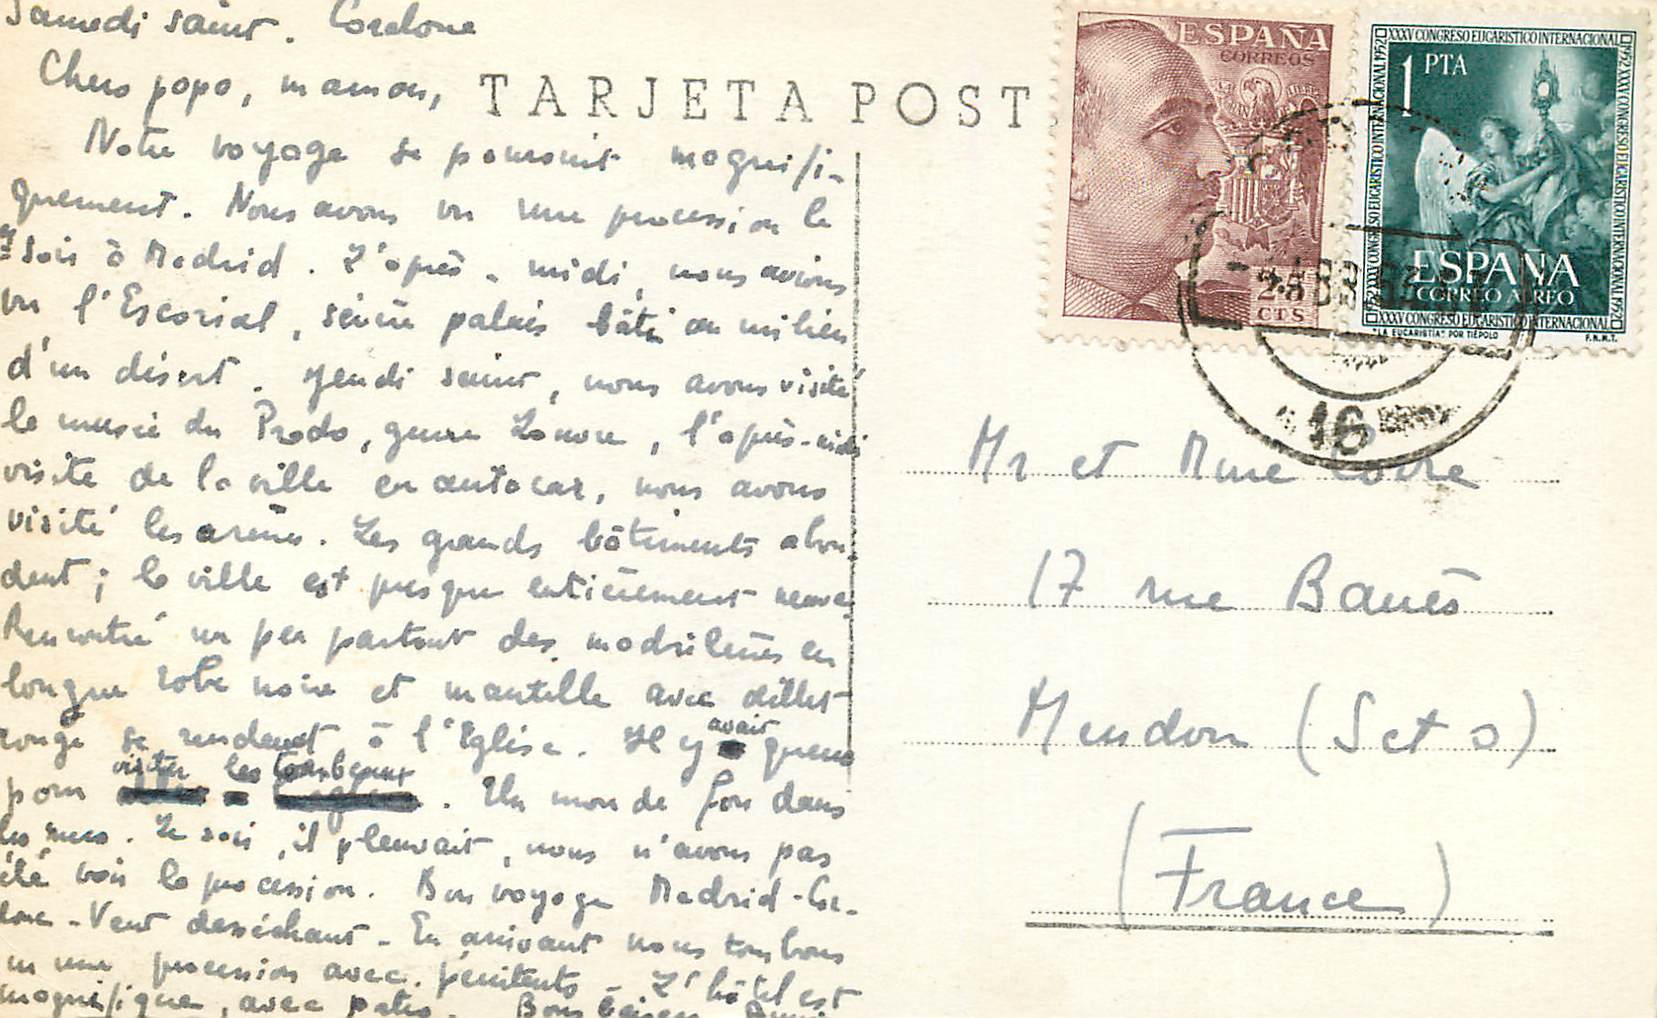 Samedi saint. Cordoue
Chers papa, maman,
TARJETA POST
Notre voyage se poursuit magnifi-
quement. Nous avons vu une procession le
soir à Madrid. L'après-midi, nous avions
vu l'Escorial, sévère palais bâti au milieu
d'un désert. Jeudi saint, nous avons visité
le musée du Prado, genre Louvre, l'après-midi
visite de la ville en autocar, nous avons
visité les arènes. Les grands bâtiments abon-
dent ; la ville est presque entièrement neuve.
Rencontré un peu partout des madrilènes en
longue robe noire et mantille avec œillet
rouge se rendant à l'Eglise. Il y avait queue
pour visiter les tombeaux. Un monde fou dans
les rues. Le soir, il pleuvait, nous n'avons pas
été voir la procession. Bon voyage Madrid-Cor-
doue - Vent desséchant - En arrivant nous tombons
sur une procession avec pénitents - L'hôtel est
magnifique, avec patio. Bons baisers
ESPAÑA
CORREOS
25
CTS
XXXV CONGRESO EUCARISTICO INTERNACIONAL 1952
1 PTA
ESPAÑA
CORREO AEREO
XXXV CONGRESO EUCARISTICO INTERNACIONAL
"LA EUCARISTIA" POR TIEPOLO
F.N.M.T.
16
Mr et Mme
17 rue Banès
Meudon (S et O)
(France)